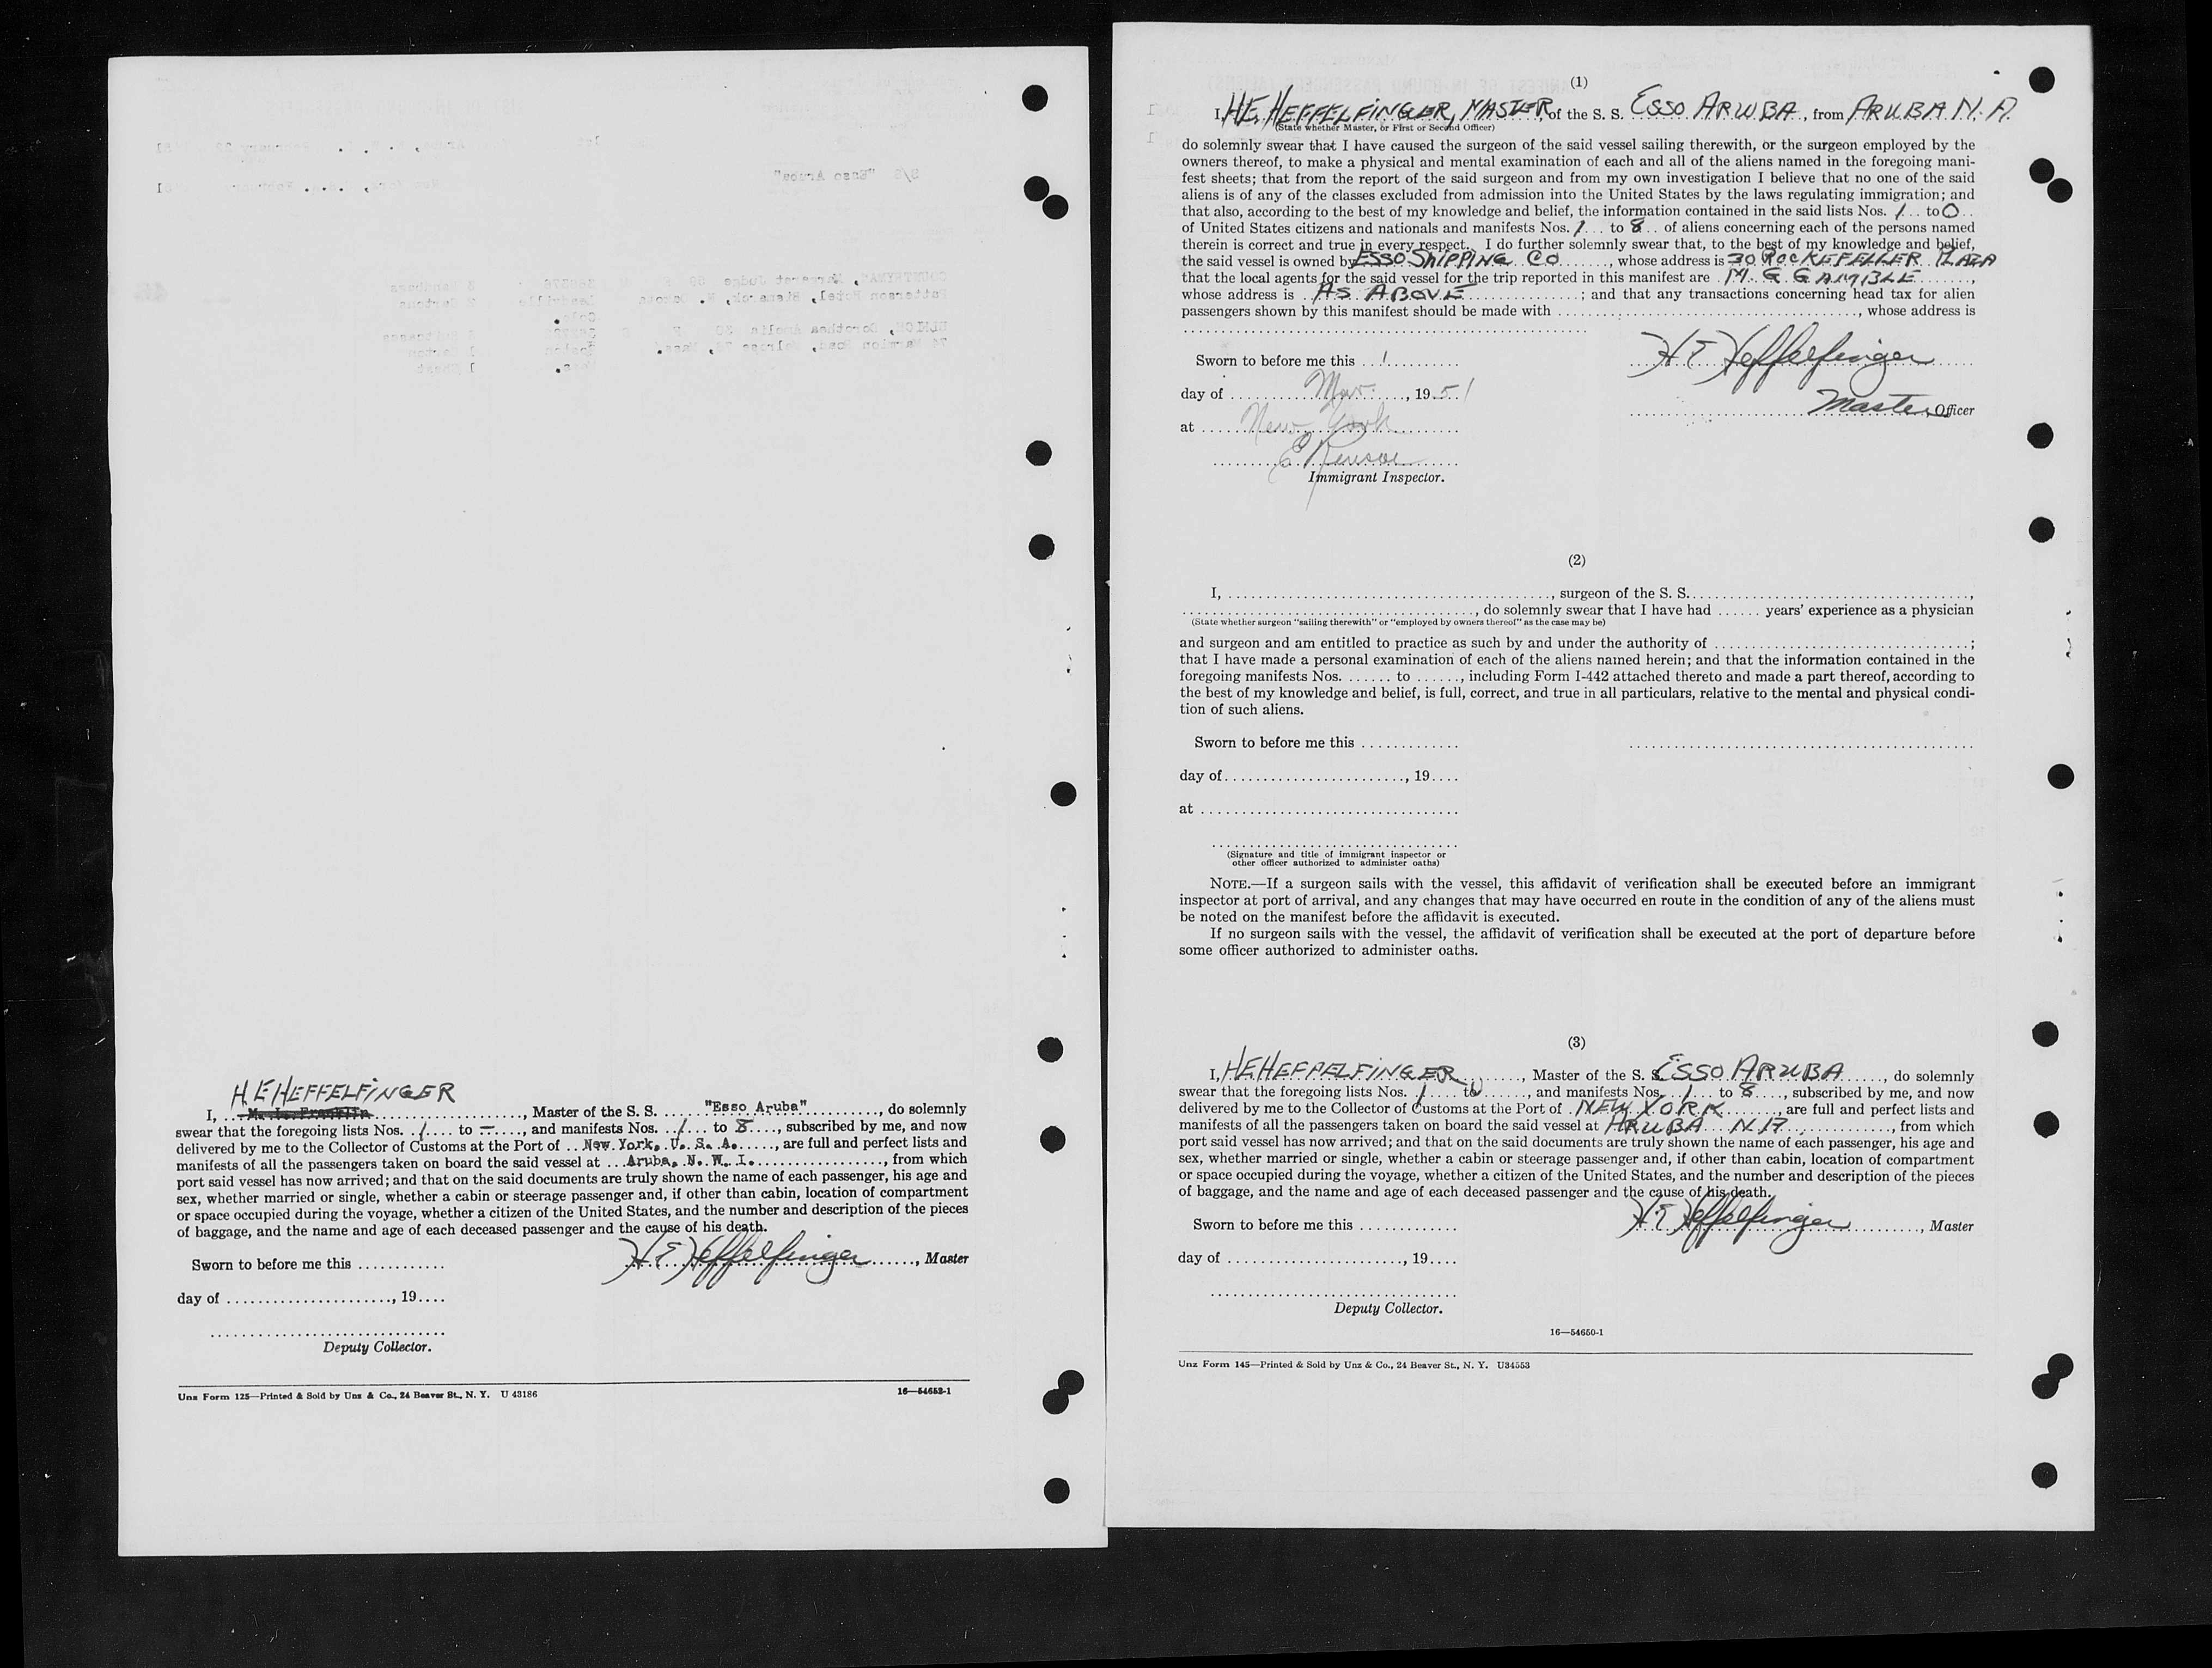 H.E HEFFELFINGER
I, .. M. L. Franklin ...................., Master of the S. S. ...... "Esso Aruba" .........., do solemnly
swear that the foregoing lists Nos. ../.... to –...., and manifests Nos. ../... to 8..., subscribed by me, and now
delivered by me to the Collector of Customs at the Port of .. New York, U. S. A. ....., are full and perfect lists and
manifests of all the passengers taken on board the said vessel at ...Aruba, N. W. I. .................., from which
port said vessel has now arrived; and that on the said documents are truly shown the name of each passenger, his age and
sex, whether married or single, whether a cabin or steerage passenger and, if other than cabin, location of compartment
or space occupied during the voyage, whether a citizen of the United States, and the number and description of the pieces
of baggage, and the name and age of each deceased passenger and the cause of his death.
H E Heffelfinger ......, Master
Sworn to before me this ............
day of ......................, 19....
Deputy Collector.
Unz Form 125—Printed & Sold by Unz & Co., 24 Beaver St., N. Y. U 43186
16—54652-1
(1)
I, H.E. HEFFELFINGER, MASTER, of the S. S. ESSO ARUBA, from ARUBA N. A.
(State whether Master, or First or Second Officer)
do solemnly swear that I have caused the surgeon of the said vessel sailing therewith, or the surgeon employed by the
owners thereof, to make a physical and mental examination of each and all of the aliens named in the foregoing mani-
fest sheets; that from the report of the said surgeon and from my own investigation I believe that no one of the said
aliens is of any of the classes excluded from admission into the United States by the laws regulating immigration; and
that also, according to the best of my knowledge and belief, the information contained in the said lists Nos. 1... to 0...
of United States citizens and nationals and manifests Nos. 1... to 8.. of aliens concerning each of the persons named
therein is correct and true in every respect. I do further solemnly swear that, to the best of my knowledge and belief,
the said vessel is owned by ESSO SHIPPING CO ......, whose address is 30 ROCKEFELLER PLAZA
that the local agents for the said vessel for the trip reported in this manifest are . M. G GAMBLE .......,
whose address is . AS ABOVE ..............; and that any transactions concerning head tax for alien
passengers shown by this manifest should be made with ......................................, whose address is
H E Heffelfinger
Sworn to before me this ...1..........
day of ........... Mar. ....., 19 51
Master, Officer
at ..... New York ..........
Immigrant Inspector.
(2)
I, .........................................., surgeon of the S. S.....................................,
......................................, do solemnly swear that I have had ...... years' experience as a physician
(State whether surgeon "sailing therewith" or "employed by owners thereof" as the case may be)
and surgeon and am entitled to practice as such by and under the authority of .................................;
that I have made a personal examination of each of the aliens named herein; and that the information contained in the
foregoing manifests Nos. ...... to ......, including Form I-442 attached thereto and made a part thereof, according to
the best of my knowledge and belief, is full, correct, and true in all particulars, relative to the mental and physical condi-
tion of such aliens.
Sworn to before me this .............
day of......................., 19....
at .................................
(Signature and title of immigrant inspector or
other officer authorized to administer oaths)
NOTE.—If a surgeon sails with the vessel, this affidavit of verification shall be executed before an immigrant
inspector at port of arrival, and any changes that may have occurred en route in the condition of any of the aliens must
be noted on the manifest before the affidavit is executed.
If no surgeon sails with the vessel, the affidavit of verification shall be executed at the port of departure before
some officer authorized to administer oaths.
(3)
I, H.E. HEFFELFINGER ......., Master of the S. S. ESSO ARUBA ....., do solemnly
swear that the foregoing lists Nos. .1.... to 0......, and manifests Nos...1... to 8...., subscribed by me, and now
delivered by me to the Collector of Customs at the Port of . NEW YORK ......., are full and perfect lists and
manifests of all the passengers taken on board the said vessel at ARUBA N.A. ............, from which
port said vessel has now arrived; and that on the said documents are truly shown the name of each passenger, his age and
sex, whether married or single, whether a cabin or steerage passenger and, if other than cabin, location of compartment
or space occupied during the voyage, whether a citizen of the United States, and the number and description of the pieces
of baggage, and the name and age of each deceased passenger and the cause of his death.
H E Heffelfinger .........., Master
Sworn to before me this .............
day of ......................., 19....
Deputy Collector.
16—54650-1
Unz Form 145—Printed & Sold by Unz & Co., 24 Beaver St., N. Y. U34553